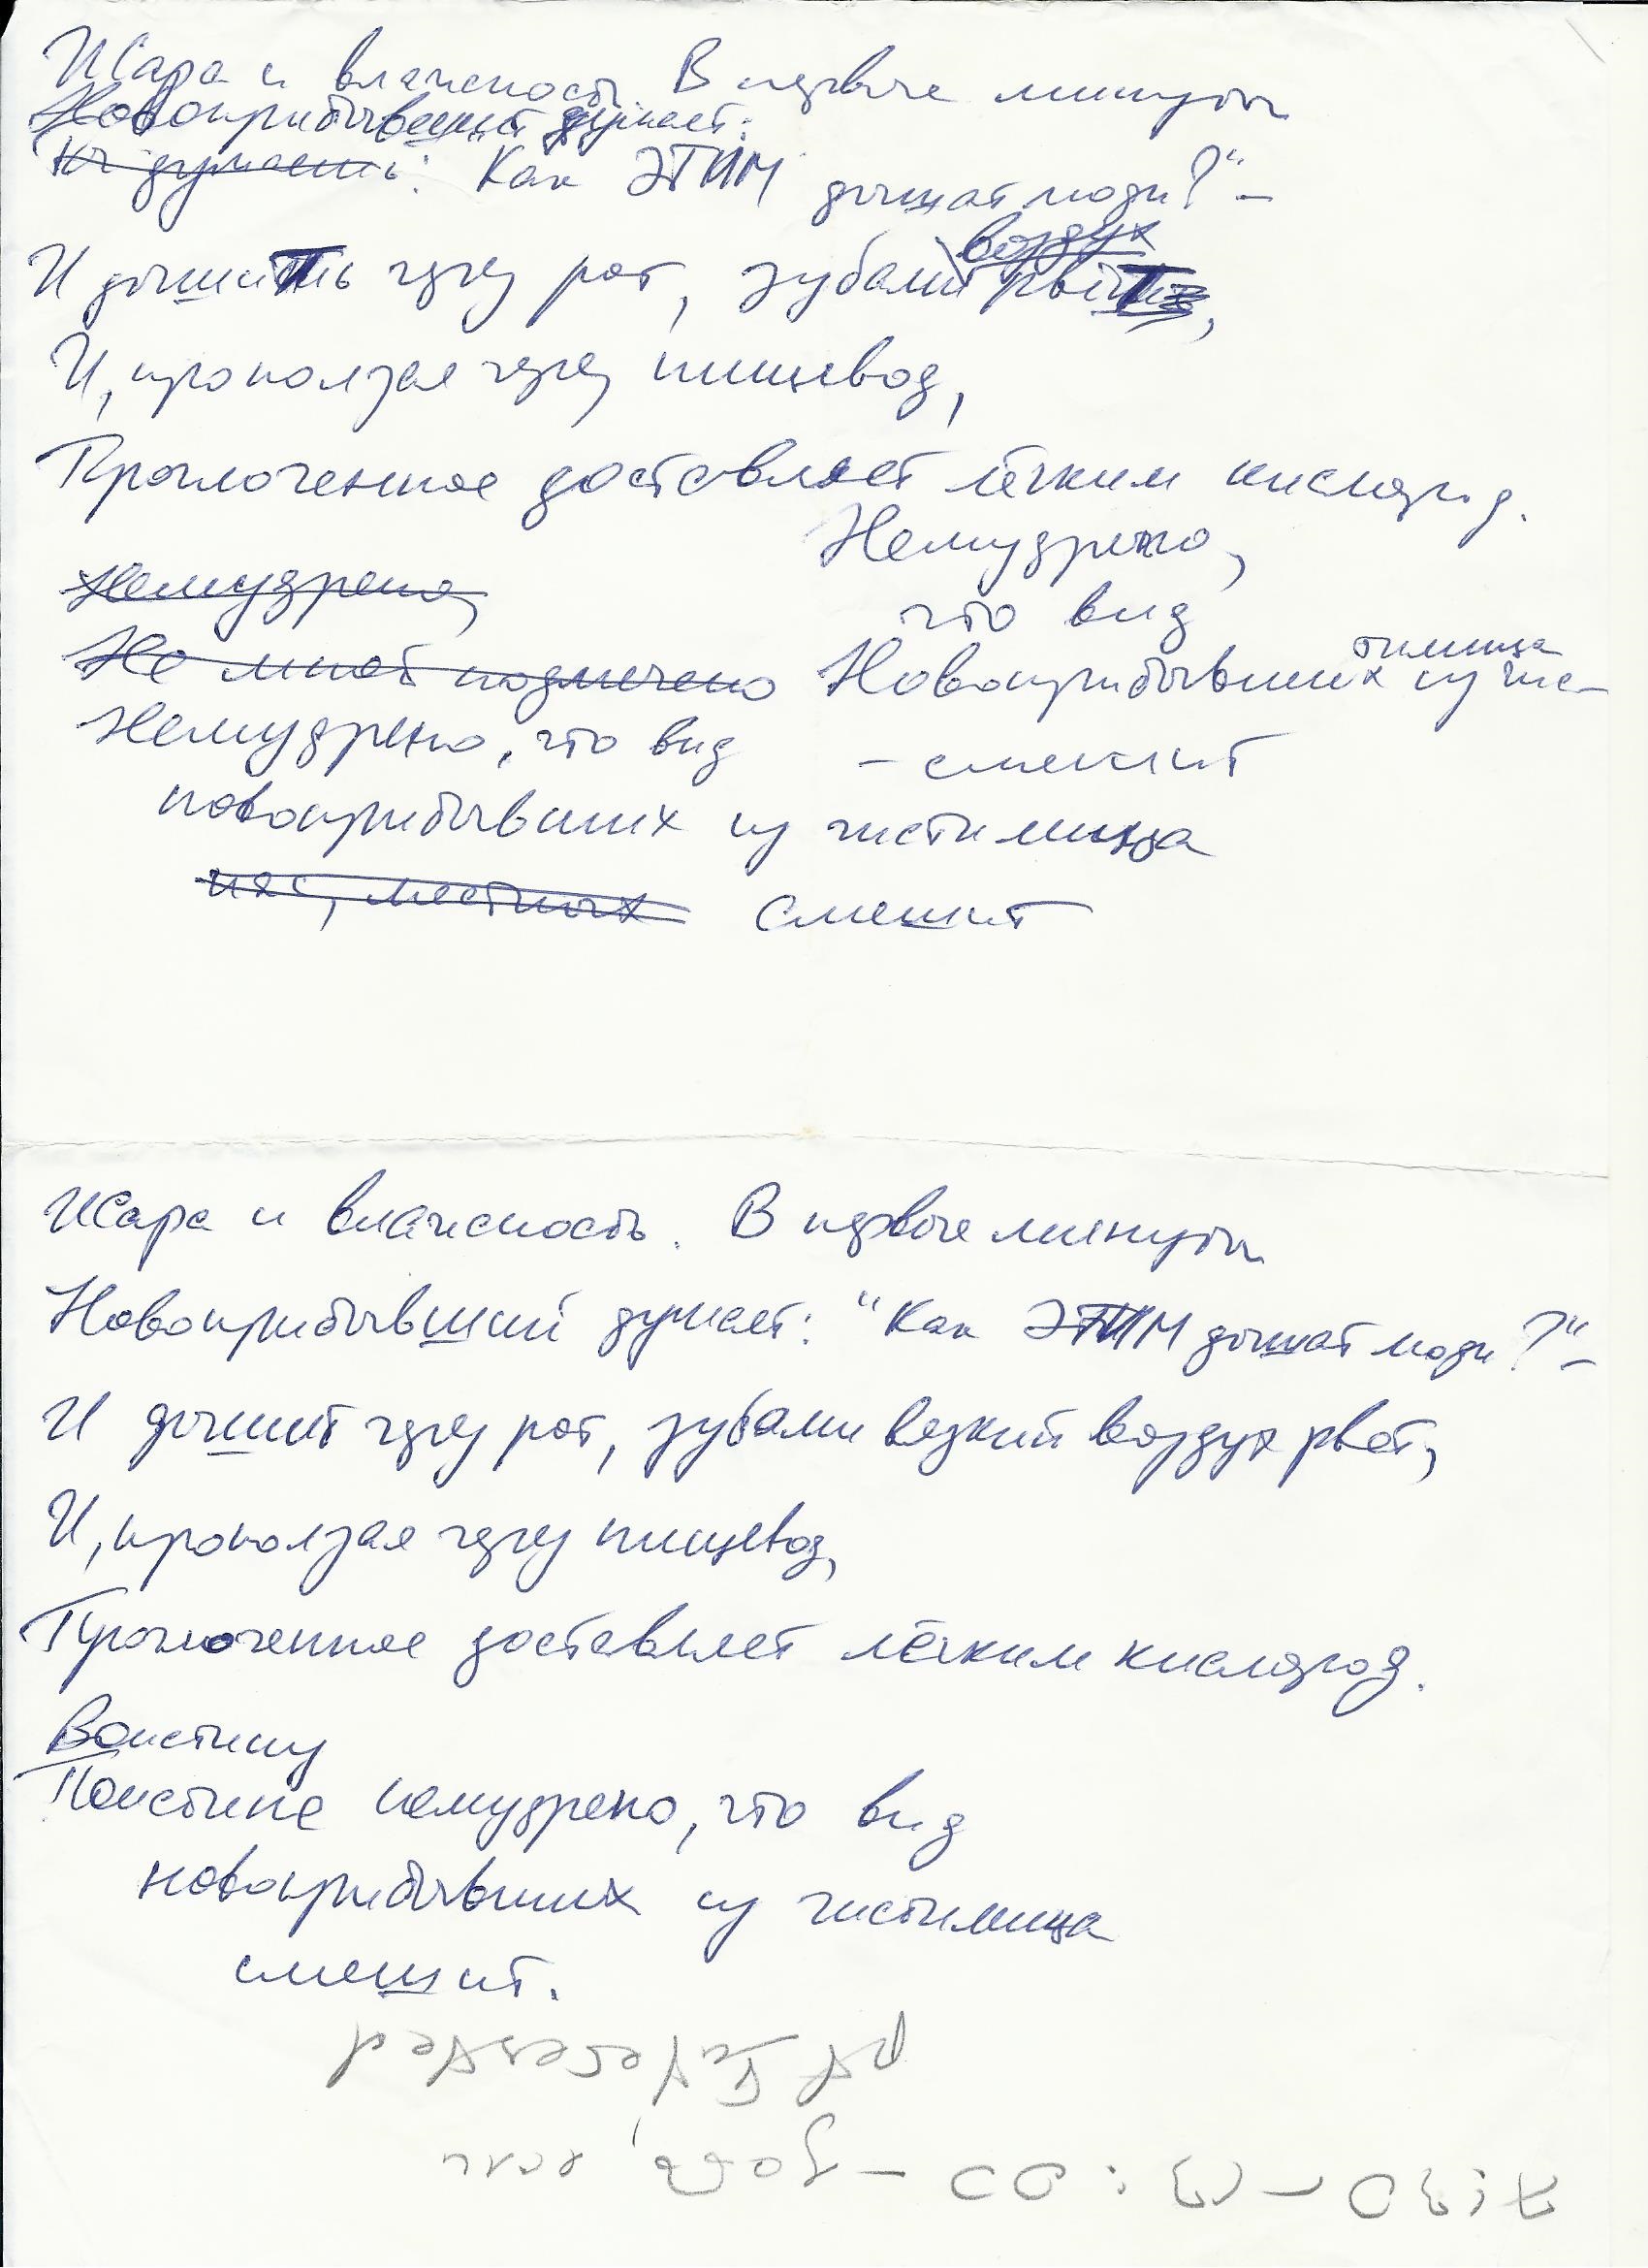 Жара и влажность. В первые минуты
Новоприбывший думает:
Ты думаешь: Как ЭТИМ дышат люди?" –
воздух
И дышить через рот, зубами рвёт,
И, проползая через пищевод,
Проглоченное доставляет лёгким кислород.
Немудрено,
Немудрено,
что вид
Не мной подмечено Новоприбывших из чис-
тилища
Немудрено, что вид – смешит
новоприбывших из чистилища
нас, местных смешит
Жара и влажность. В первые минуты
Новоприбывший думает: "Как ЭТИМ дышат люди?" –
И дышит через рот, зубами вязкий воздух рвёт,
И, проползая через пищевод,
Проглоченное доставляет лёгким кислород.
Воистину
Поистине немудрено, что вид
новоприбывших из чистилища
смешит.